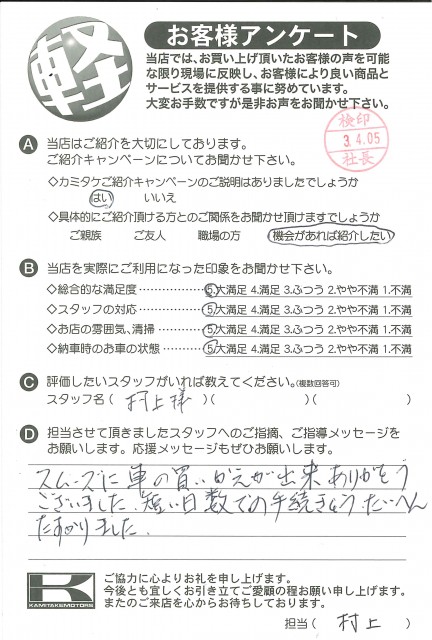 軽
お客様アンケート
当店では、お買い上げ頂いたお客様の声を可能
な限り現場に反映し、お客様により良い商品と
サービスを提供する事に努めています。
大変お手数ですが是非お声をお聞かせ下さい。
検印
3.4.05
社長
A 当店はご紹介を大切にしております。
ご紹介キャンペーンについてお聞かせ下さい。
◇カミタケご紹介キャンペーンのご説明はありましたでしょうか
はい いいえ
◇具体的にご紹介頂ける方とのご関係をお聞かせ頂けますでしょうか
ご親族 ご友人 職場の方 機会があれば紹介したい
B 当店を実際にご利用になった印象をお聞かせ下さい。
◇総合的な満足度…………5.大満足 4.満足 3.ふつう 2.やや不満 1.不満
◇スタッフの対応…………5.大満足 4.満足 3.ふつう 2.やや不満 1.不満
◇お店の雰囲気、清掃………5.大満足 4.満足 3.ふつう 2.やや不満 1.不満
◇納車時のお車の状態………5.大満足 4.満足 3.ふつう 2.やや不満 1.不満
C 評価したいスタッフがいれば教えてください。(複数回答可)
スタッフ名(村上様)( )( )
D 担当させて頂きましたスタッフへのご指摘、ご指導メッセージを
お願いします。応援メッセージもぜひお願いします。
スムーズに車の買いかえが出来ありがとう
ございました。短い日数での手続きを たいへん
たすかりました。
K
KAMITAKEMOTORS
ご協力に心よりお礼を申し上げます。
今後とも宜しくお引き立てご愛顧の程お願い申し上げます。
またのご来店を心からお待ちしております。
担当(村上)